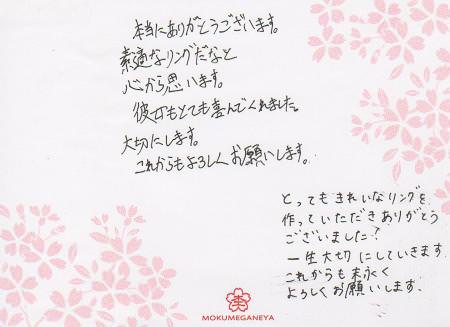 本当にありがとうございます。
素適なリングだなと
心から思います。
彼女もとても喜んでくれました。
大切にします。
これからもよろしくお願いします。
とってもきれいなリングを
作っていただきありがとう
ございました!
一生大切にしていきます
これからも末永く
よろしくお願いします。
MOKUMEGANEYA